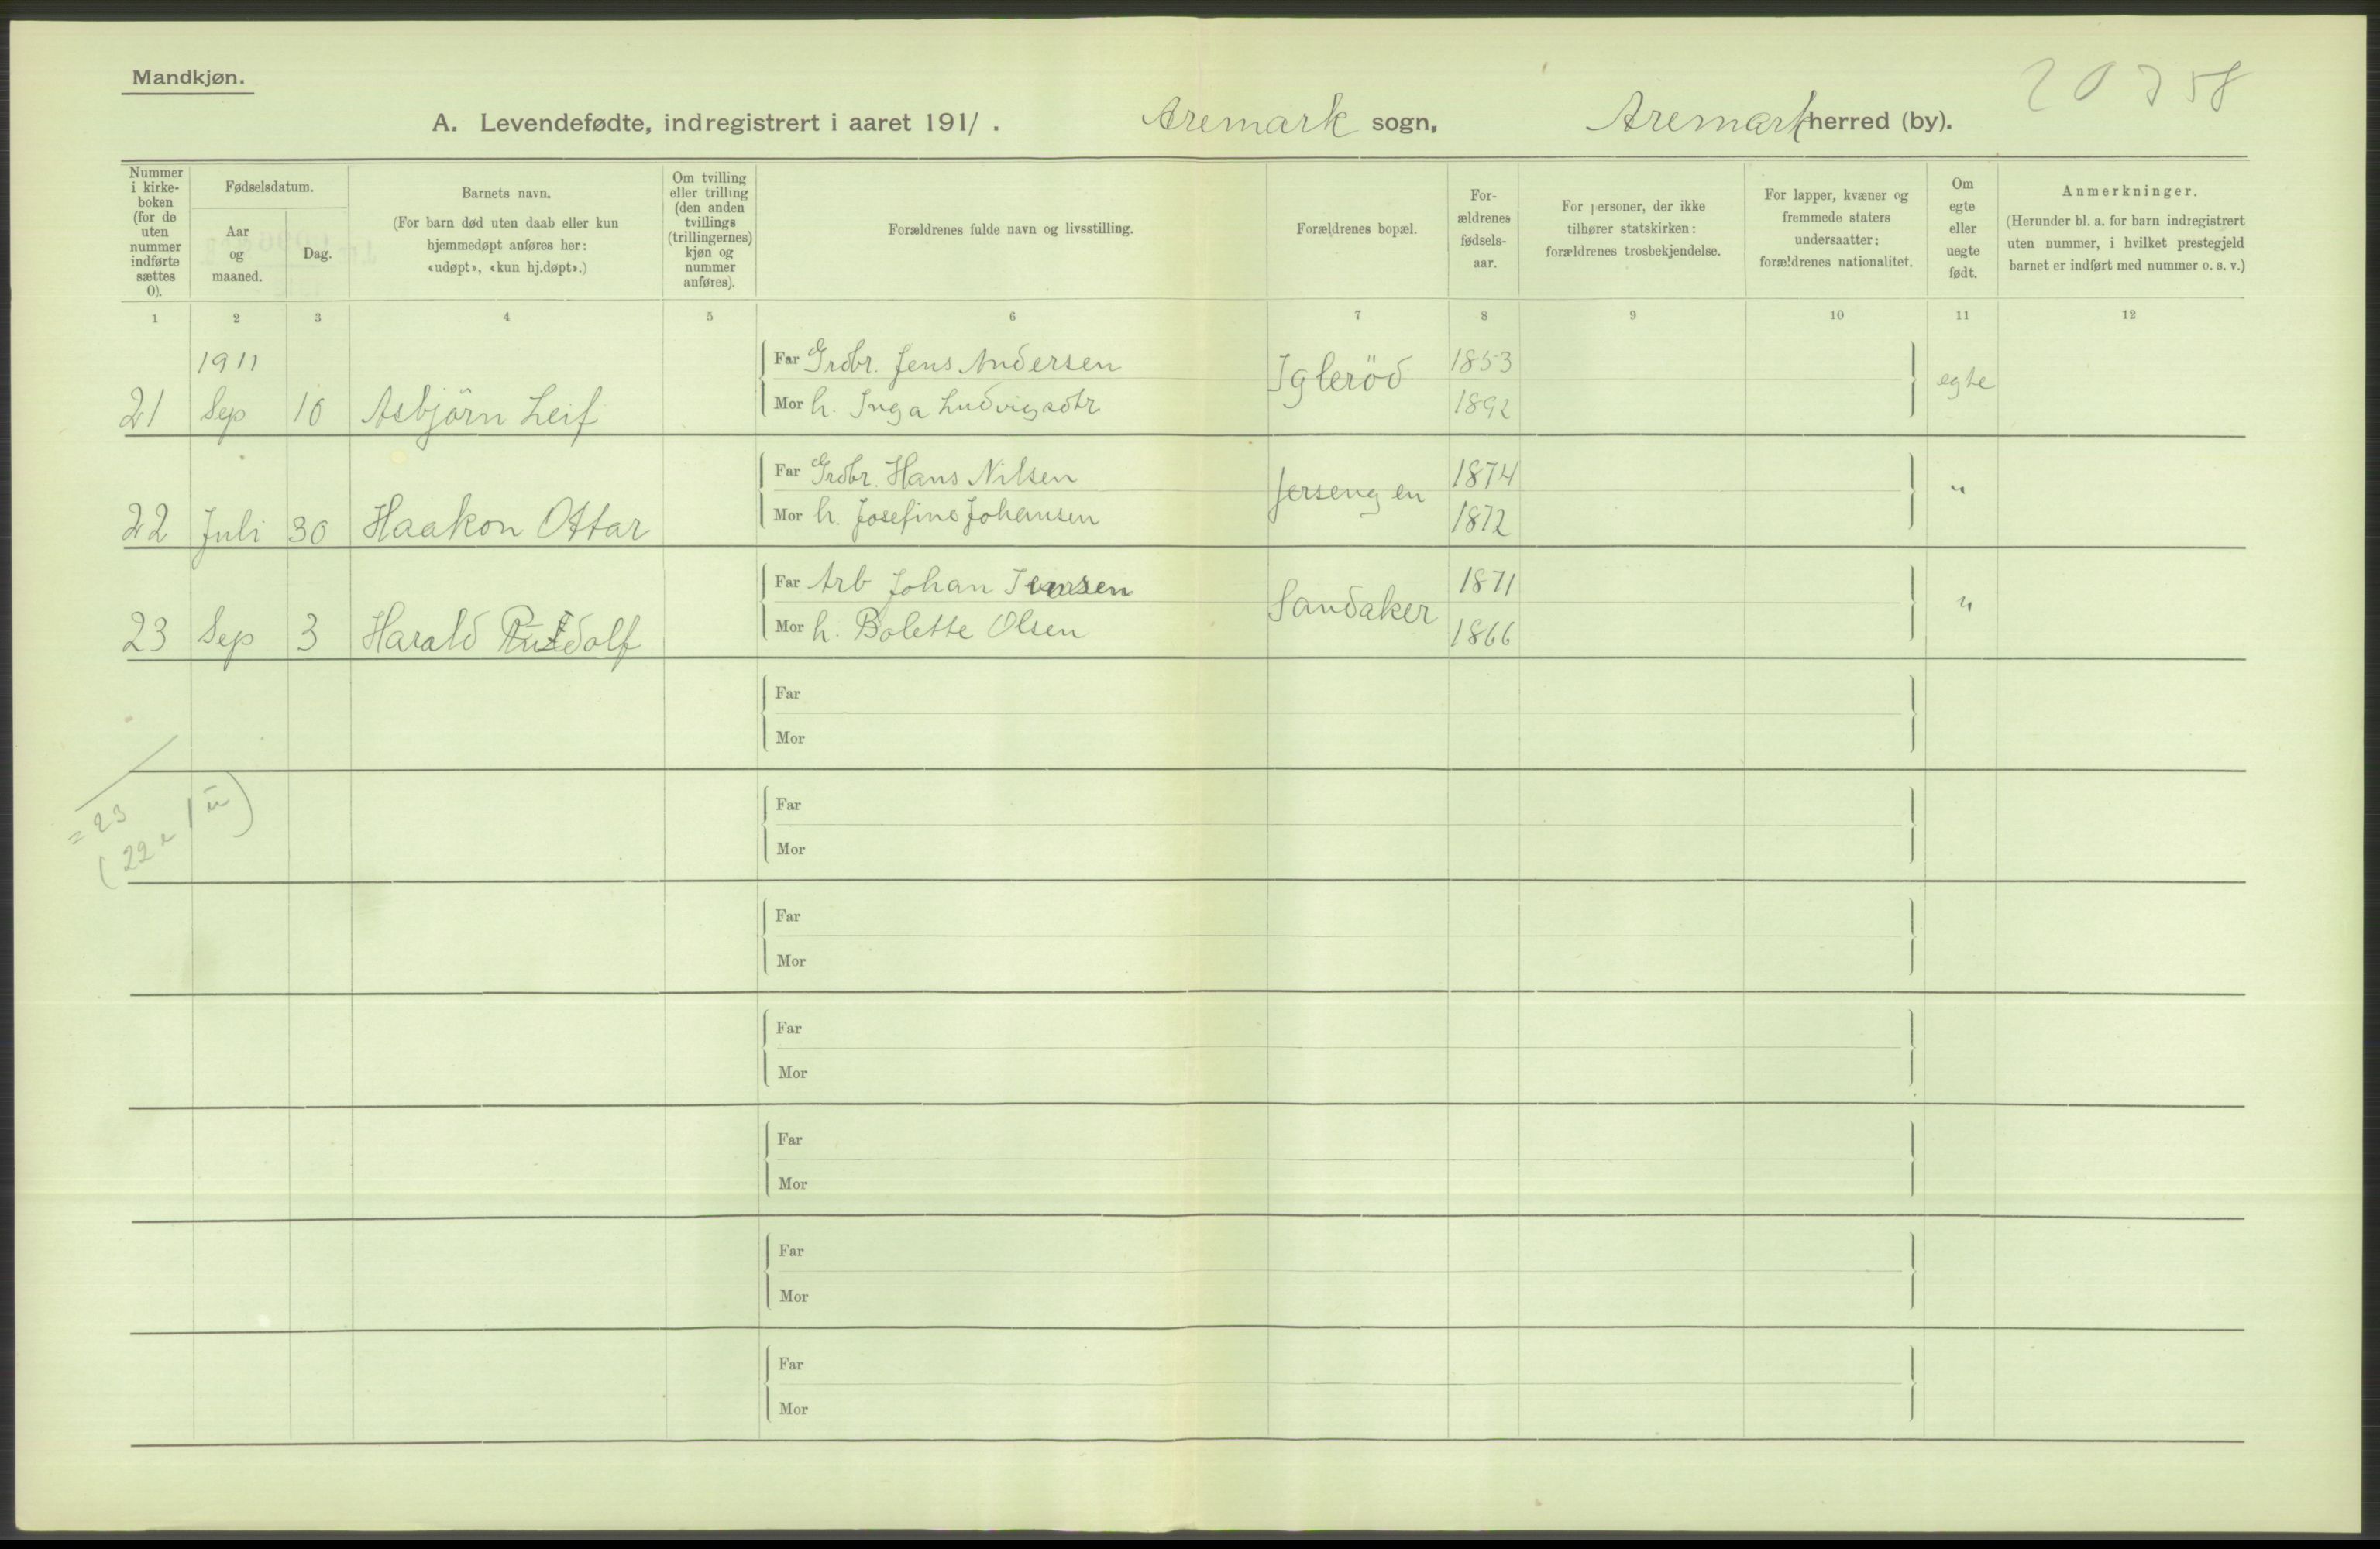 Mandkjøn.
A. Levendefødte, indregistrert i aaret 1911. Aremark sogn, Aremark herred (by).
Nummer i kirke-boken (for de uten nummer indførte sættes 0).
Fødselsdatum.
Aar og maaned.
Dag.
Barnets navn.
(For barn død uten daab eller kun hjemmedøpt anføres her: «udøpt», «kun hj.døpt».)
Om tvilling eller trilling (den anden tvillings (trillingernes) kjøn og nummer anføres).
Forældrenes fulde navn og livsstilling.
Forældrenes bopæl.
For-ældrenes fødsels-aar.
For personer, der ikke tilhører statskirken: forældrenes trosbekjendelse.
For lapper, kvæner og fremmede staters undersaatter: forældrenes nationalitet.
Om egte eller uegte født.
Anmerkninger.
(Herunder bl. a. for barn indregistrert uten nummer, i hvilket prestegjeld barnet er indført med nummer o. s. v.)
1 2 3 4 5 6 7 8 9 10 11 12
1911 Far Grdbr. Jens Andersen Igleröd 1853 egte
21 Sep 10 Asbjörn Leif Mor h. Inga Ludvigsdtr 1892
Far Grdbr. Hans Nilsen Jerseng en 1874 "
22 Juli 30 Haakon Ottar Mor h. Josefine Johansen 1872
Far Arb Johan Iversen Sandaker 1871 "
23 Sep 3 Harald Mor h. Bolette Olsen 1866
Far
Mor
= 23
(22
Far
Mor
Far
Mor
Far
Mor
Far
Mor
Far
Mor
Far
Mor